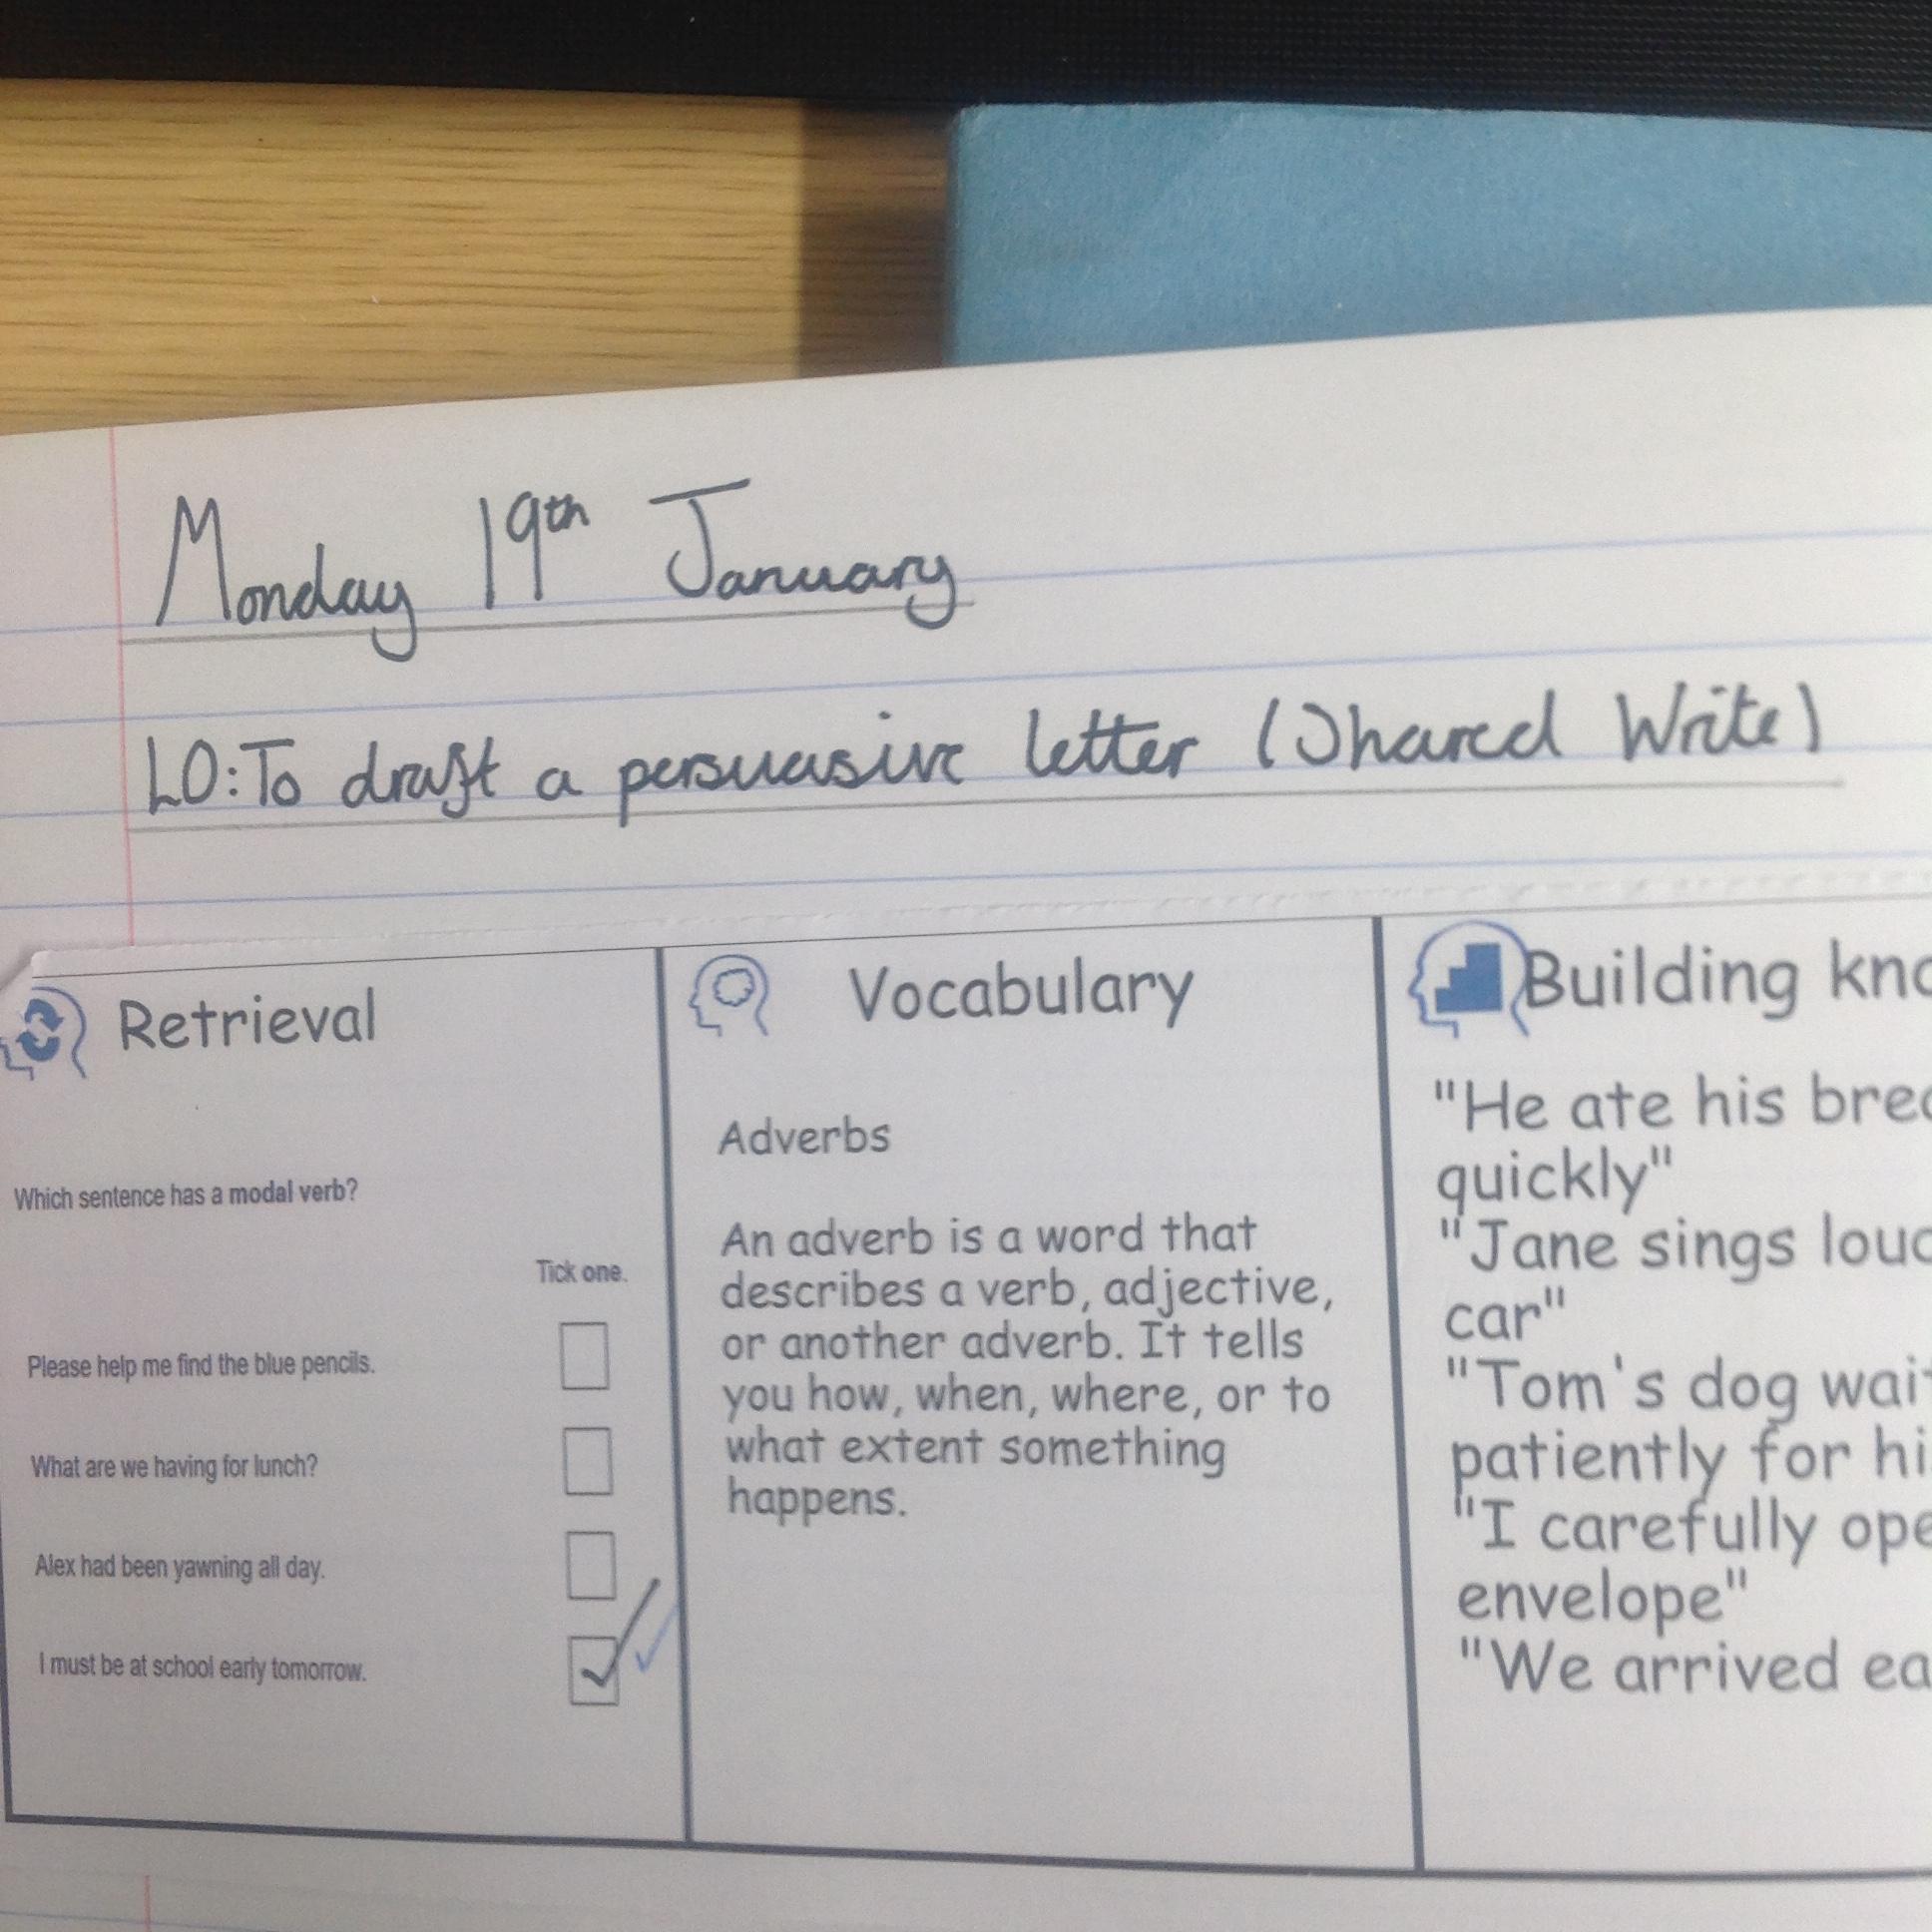 Monday 19th January
LO: To draft a persuasive letter (Shared Write)
Retrieval
Which sentence has a modal verb?
Tick one.
Please help me find the blue pencils.
What are we having for lunch?
Alex had been yawning all day.
I must be at school early tomorrow.
Vocabulary
Adverbs
An adverb is a word that
describes a verb, adjective,
or another adverb. It tells
you how, when, where, or to
what extent something
happens.
Building
"He ate his
quickly"
"Jane sings
car"
"Tom's dog
patiently for
"I carefully
envelope"
"We arrived